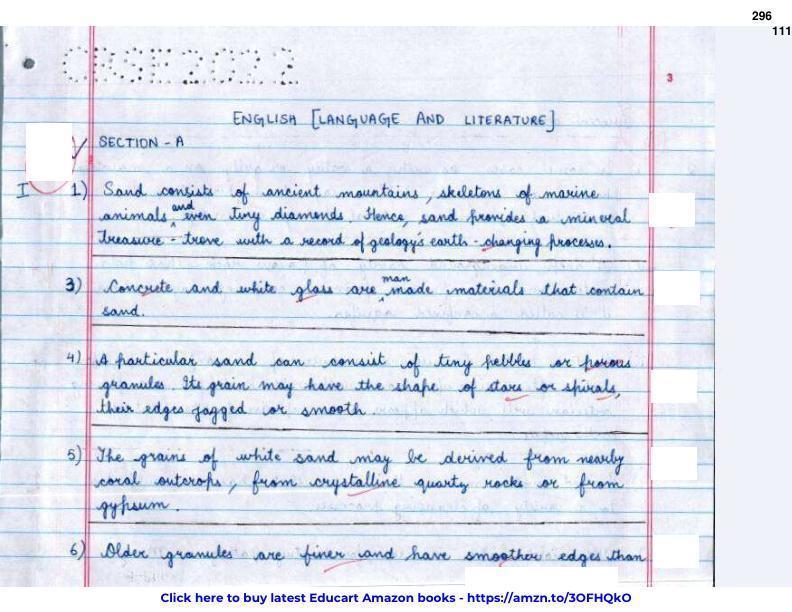 296
111
CBSE2022
3
ENGLISH [LANGUAGE AND LITERATURE]
SECTION - A
I 1) Sand consists of ancient mountains, skeletons of marine
animals and even tiny diamonds. Hence, sand provides a mineral
treasure - trove with a record of geology's earth - changing processes.
3) Concrete and white glass are man made materials that contain
sand.
4) A particular sand can consist of tiny pebbles or porous
granules. Its grain may have the shape of stars or spirals,
their edges jagged or smooth.
5) The grains of white sand may be derived from nearby
coral outcrops, from crystalline quartz rocks or from
gypsum.
6) Older granules are finer and have smoother edges than
Click here to buy latest Educart Amazon books - https://amzn.to/3OFHQkO